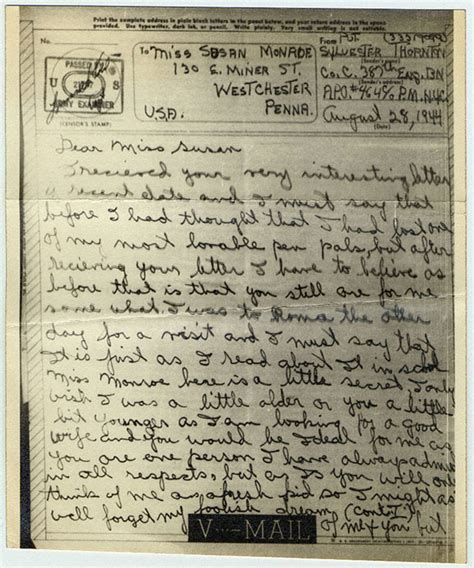 Print the complete address in plain block letters in the panel below, and your return address in the space
provided. Use typewriter, dark ink, or pencil. Write plainly. Very small writing is not suitable.
No.
PASSED BY
U S
ARMY EXAMINER
(CENSOR'S STAMP)
To Miss SUSAN MONROE
130 E. MINER ST.
WESTCHESTER
PENNA.
U.S.A.
From
Pvt
SYLVESTER
(Sender's name)
Co. C. 387th Eng. BN
(Sender's address)
A.P.O. # 464 % P.M. N.Y.C.
August 28, 1944
(Date)
Dear Miss Susan
I recieved your very interesting letter
of recent date and I must say that
before I had thought that I had lost one
of my most lovable pen pals, but after
recieving your letter I have to believe as
before that is that you still are for me
some what I was to Roma the other
day for a visit and I must say that
It is just as I read about It in scool
Miss Monroe here is a little secret I only
wish I was a little older or you a little
bit younger as I am looking for a good
wife and you would be Ideal for me as
you are one person I have always admired
in all respects, but as Is you will only
think of me as a fresh kid so I might as
well forget my foolish dream (con't)
of me x you but
V···—MAIL